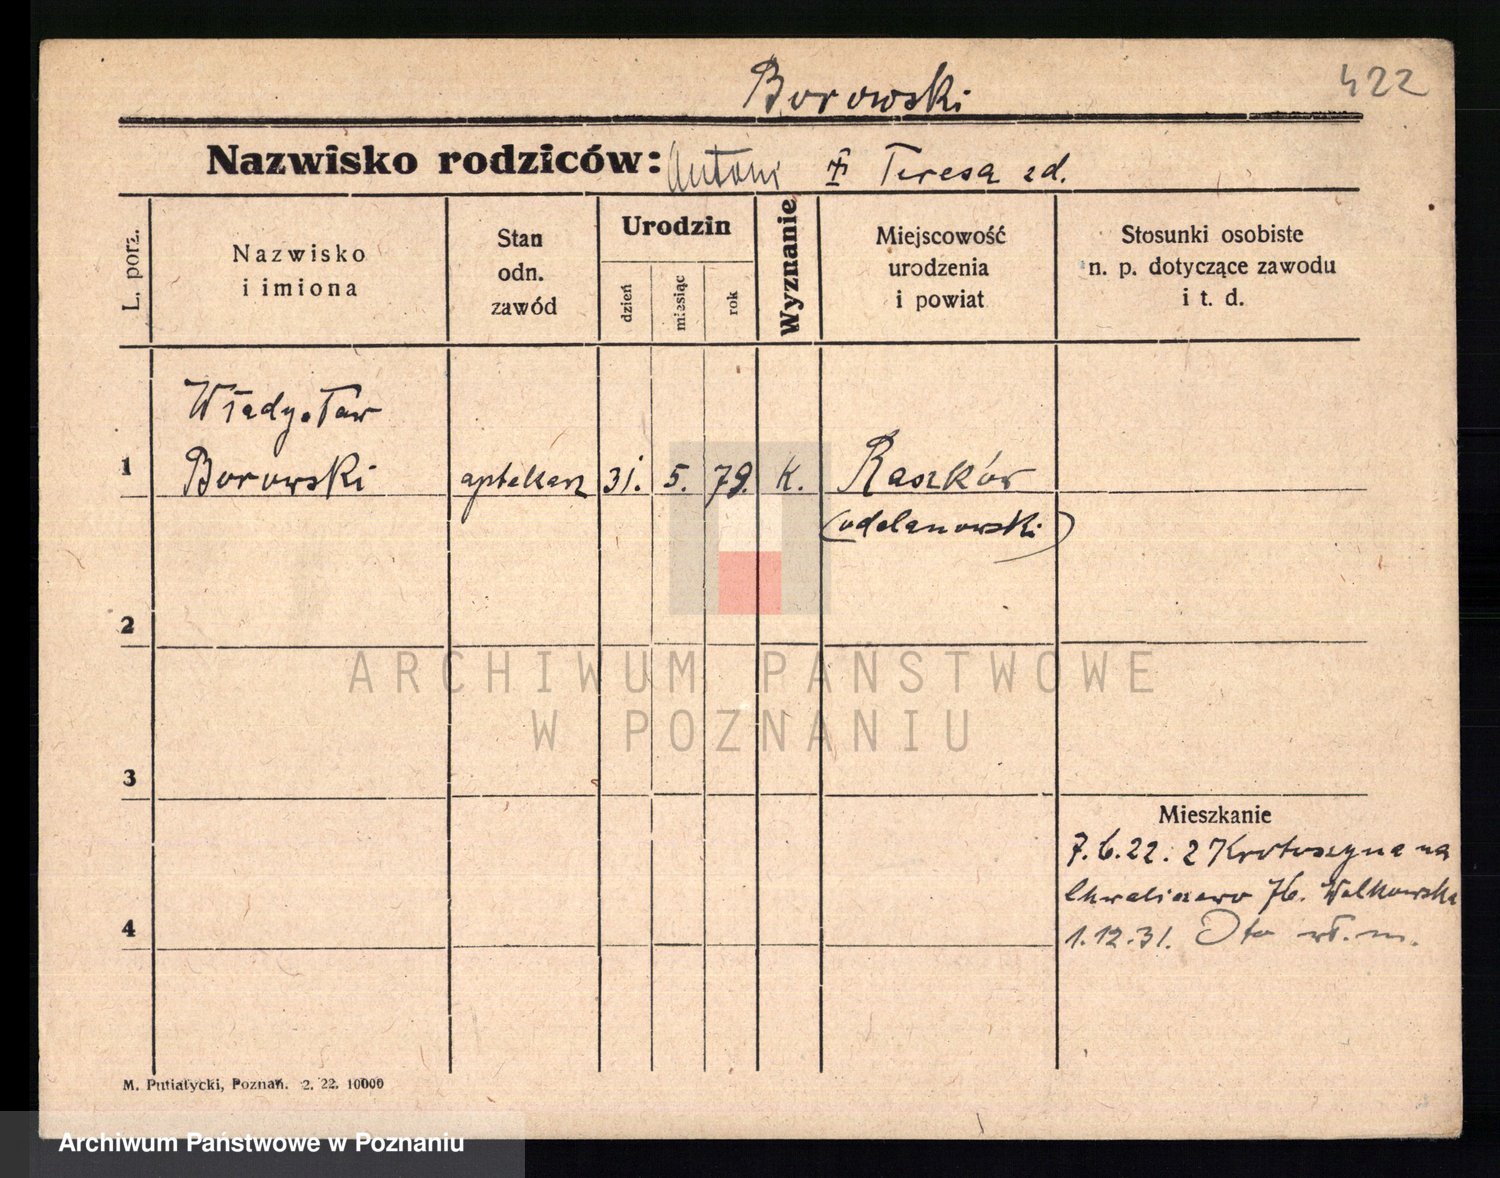 Borowski
422
Nazwisko rodziców: Antoni Teresa zd.
L. porz.
Nazwisko
i imiona
Stan
odn.
zawód
Urodzin
dzień
miesiąc
rok
Wyznanie
Miejscowość
urodzenia
i powiat
Stosunki osobiste
n. p. dotyczące zawodu
i t. d.
Władysław
1 Borowski aptekarz 31. 5. 79. K. Raszków
(odolanowski)
2
ARCHIWUM PAŃSTWOWE
W POZNANIU
3
Mieszkanie
7.6.22. z Krotoszyna na
Chwaliszewo 76. Walkowska
4
1.12.31. wł. m.
M. Putiatycki, Poznań. 2. 22. 10000
Archiwum Państwowe w Poznaniu